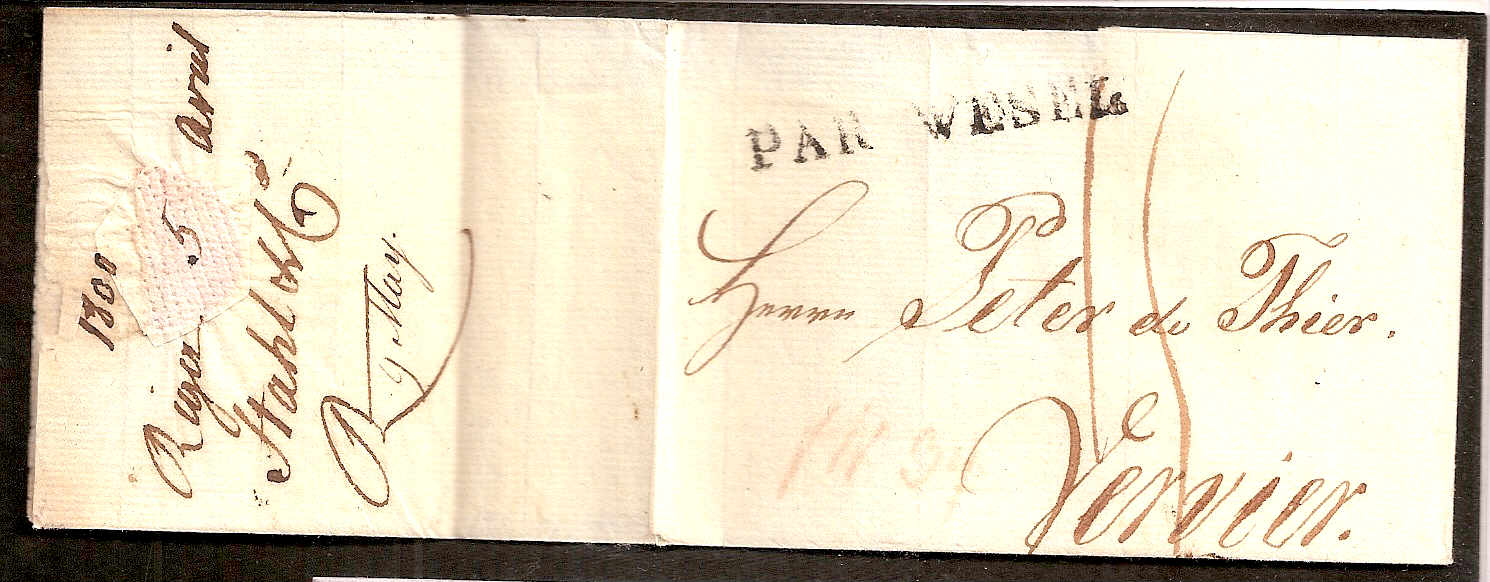 PAR WESEL
Herrn Peter de Thier.
Vervier.
1800
Riga 5 Avril
Stahl & Co
R 9 May.